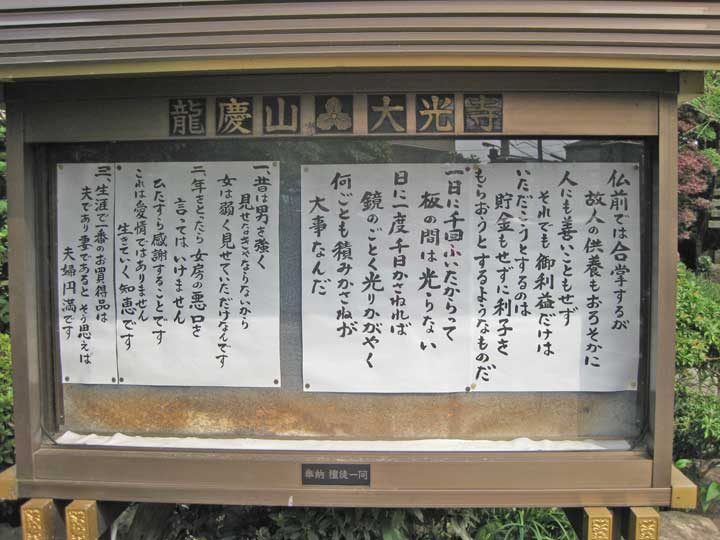 龍慶山 大光寺
仏前では合掌するが
故人の供養もおろそかに
人にも善いこともせず
それでも御利益だけは
いただこうとするのは
貯金もせずに利子を
もらおうとするようなものだ
一日に千回ふいたからって
板の間は光らない
日に一度千日かさねれば
鏡のごとく光りかがやく
何ごとも積みかさねが
大事なんだ
一、昔は男を強く
見せなきゃならないから
女は弱く見せていただけなんです
二、年をとったら女房の悪口を
言ってはいけません
ひたすら感謝することです
これは愛情ではありません
生きていく知恵です
三、生涯で一番のお買得品は
夫であり妻であると そう思えば
夫婦円満です
奉納 檀徒一同